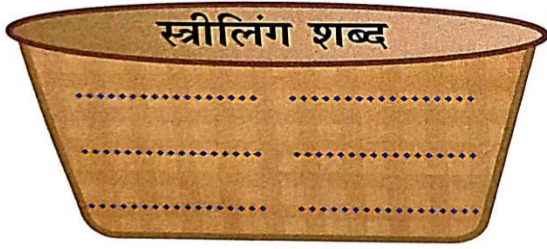 स्त्रीलिंग शब्द